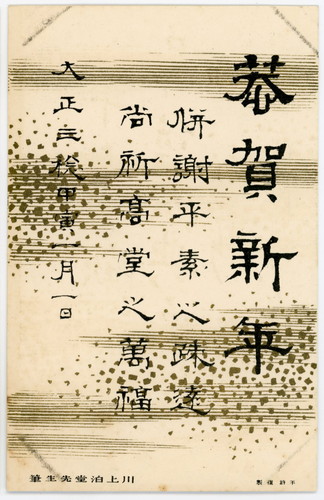 恭賀新年
併謝平素之疎遠
尚祈高堂之萬福
大正三稔甲寅一月一日
筆生先堂泊上川
製複許不